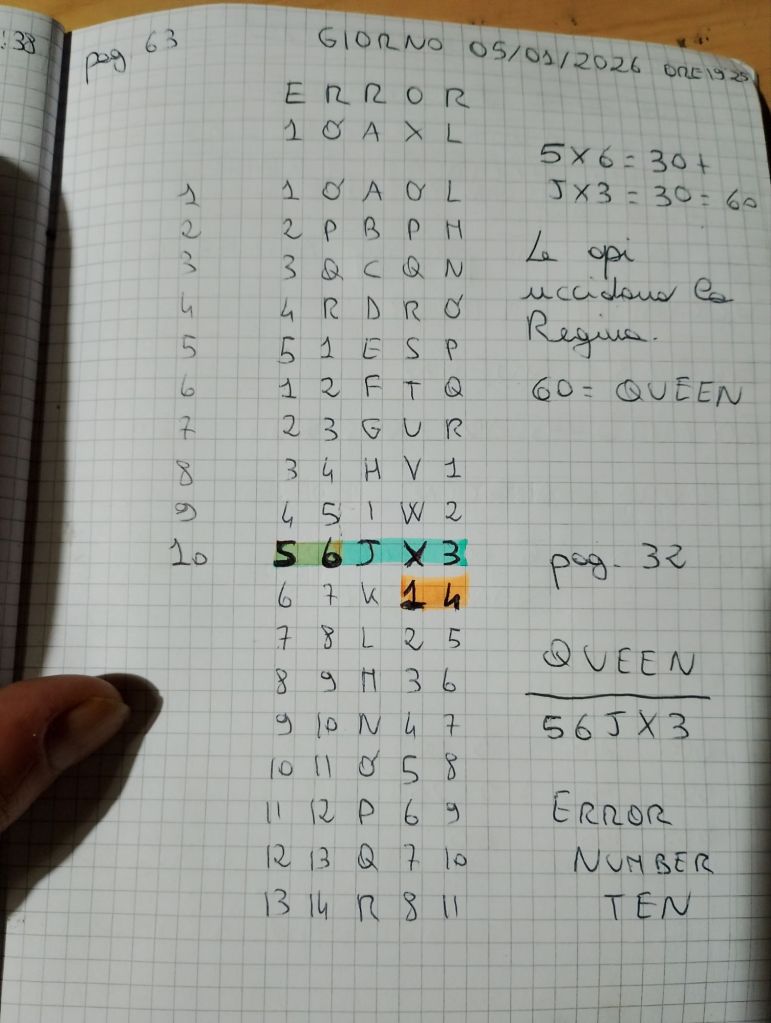 :38
pag 63
GIORNO 05/01/2026 ORE 19 25
E R R O R
1 O A X L
1 1 O A O L
2 2 P B P M
3 3 Q C Q N
4 4 R D R O
5 5 1 E S P
6 1 2 F T Q
7 2 3 G U R
8 3 4 H V 1
9 4 5 I W 2
10 5 6 J X 3
6 7 K 1 4
7 8 L 2 5
8 9 M 3 6
9 10 N 4 7
10 11 O 5 8
11 12 P 6 9
12 13 Q 7 10
13 14 R 8 11
5X6=30+
JX3=30=60
Le api
uccidono la
Regina.
60= QUEEN
pag. 32
QUEEN
56JX3
ERROR
NUMBER
TEN